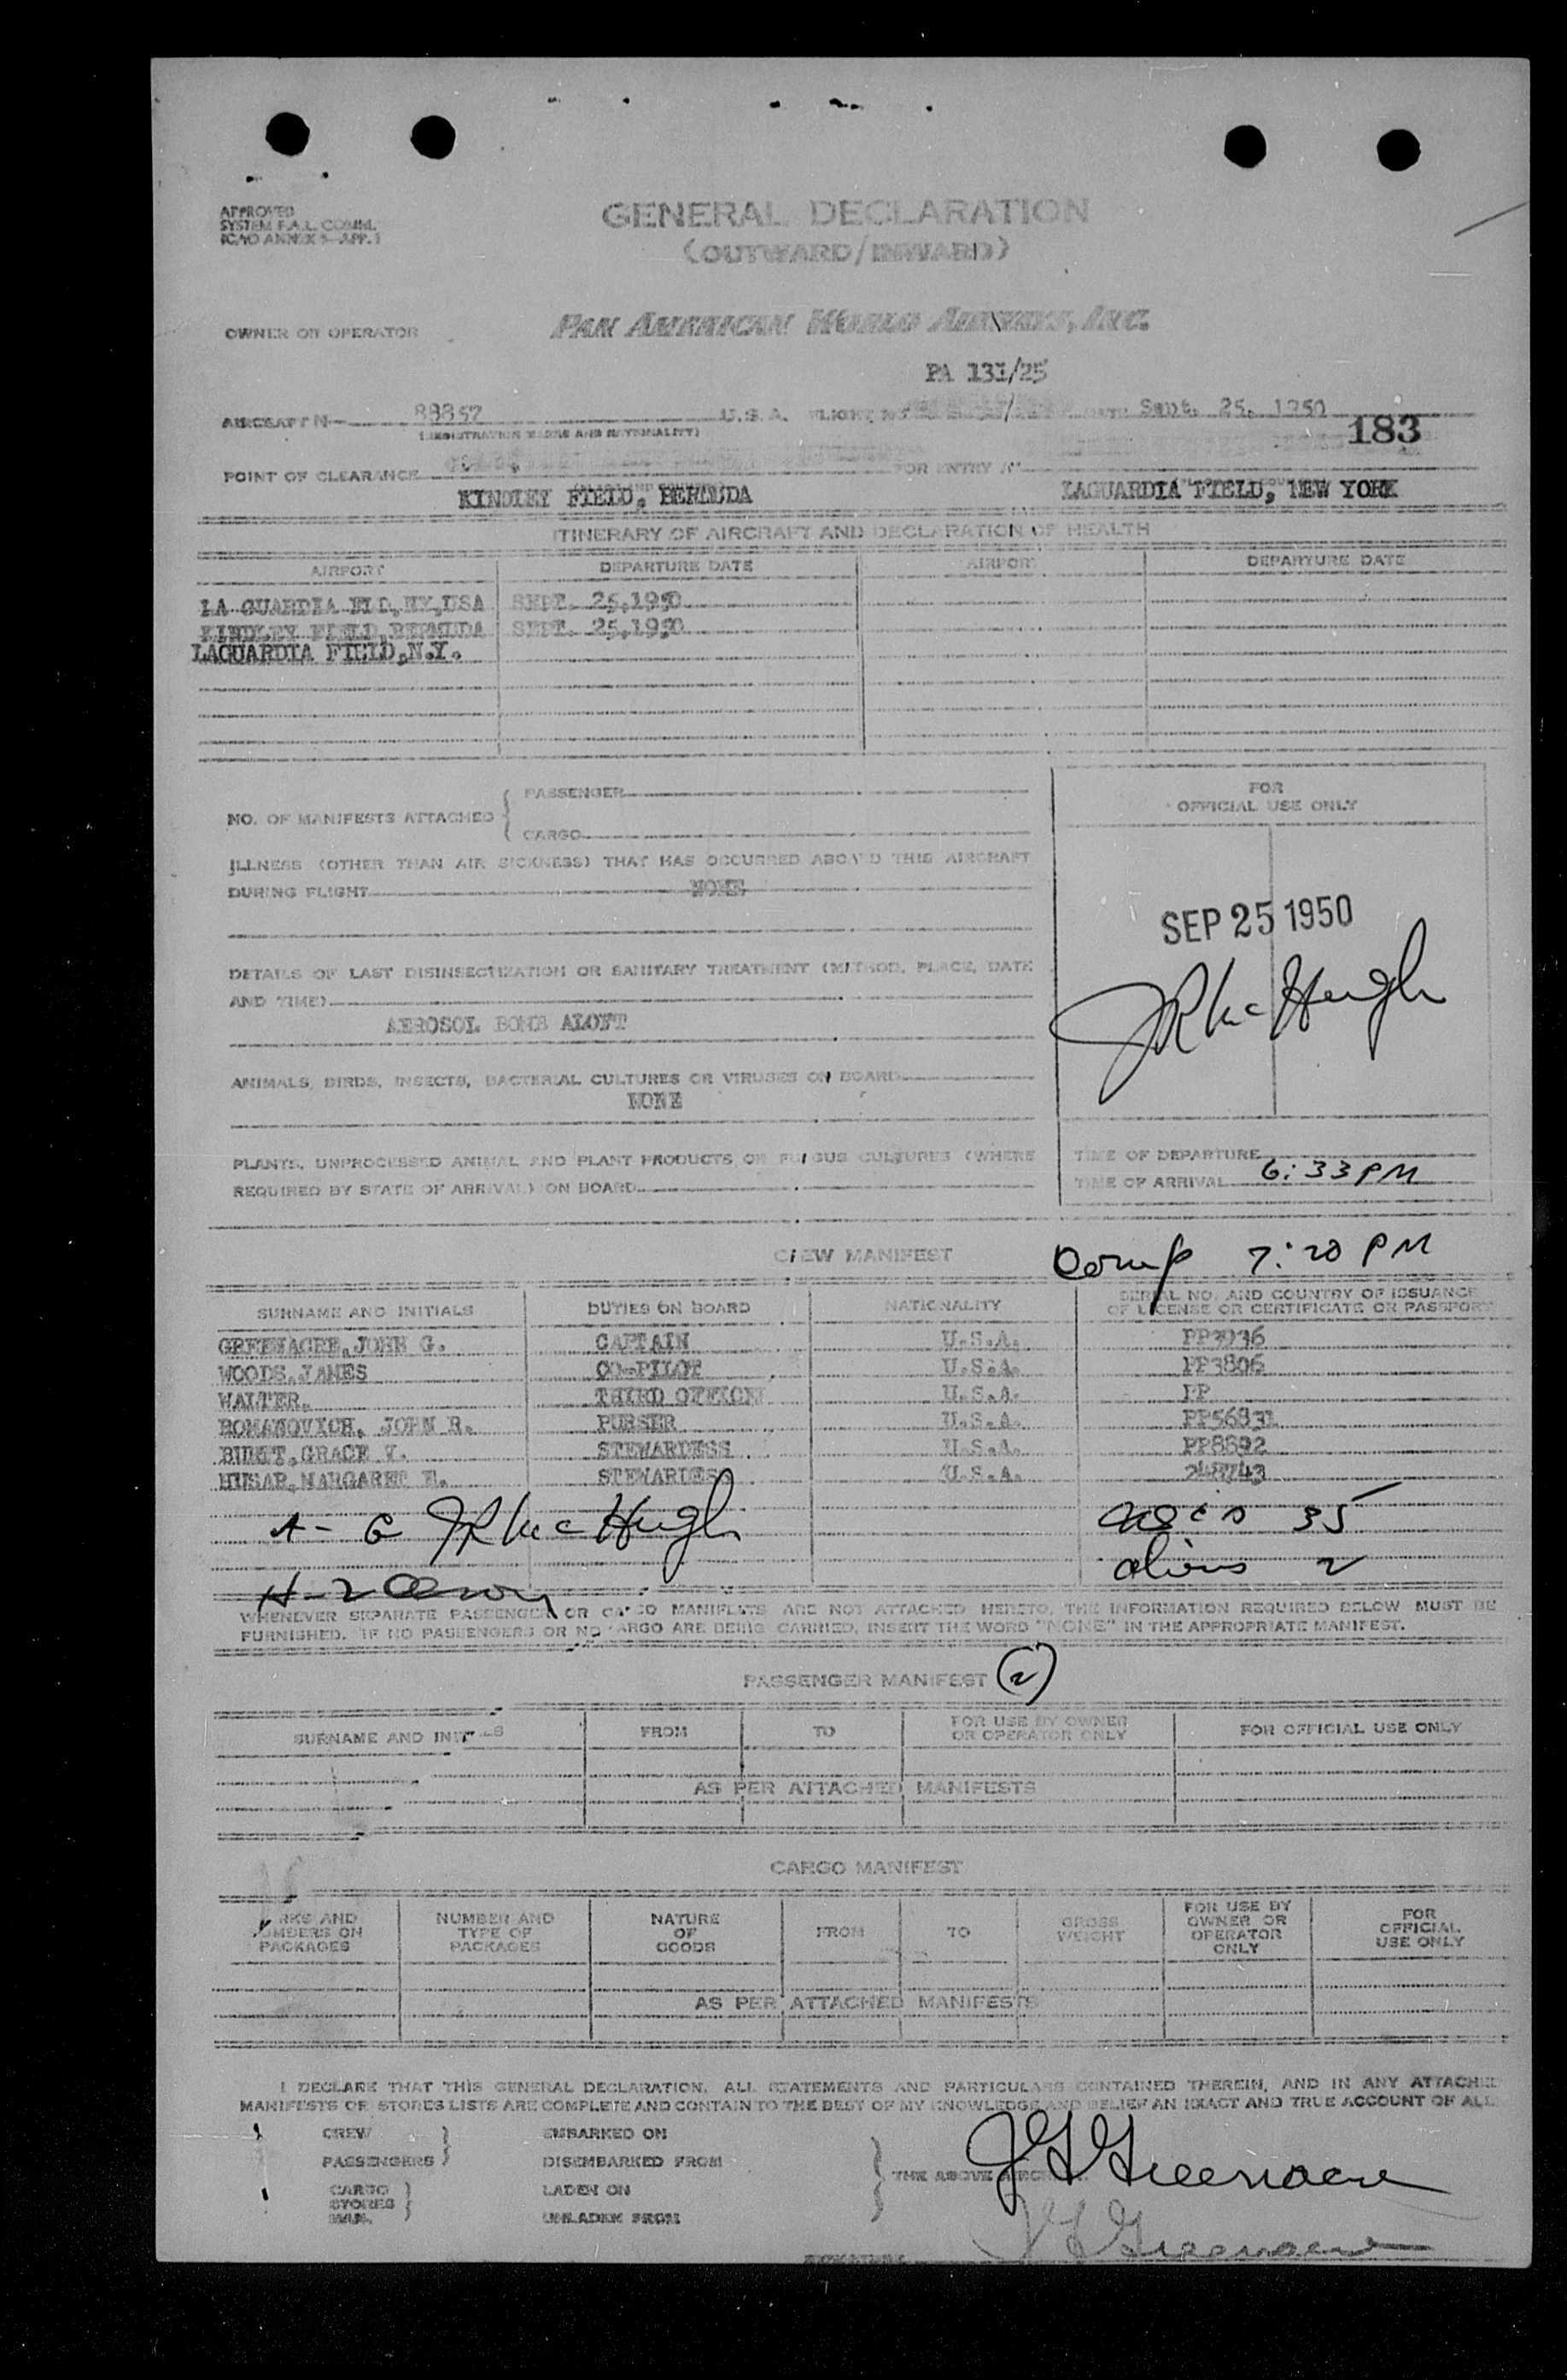 APPROVED
SYSTEM F.A.L. COMM.
ICAO ANNEX 9—APP. 1
GENERAL DECLARATION
(OUTWARD/INWARD)
OWNER OR OPERATOR PAN AMERICAN WORLD AIRWAYS, INC.
PA 131/25
AIRCRAFT N— 88857 U.S.A. FLIGHT NO. DATE Sept. 25, 1950
(REGISTRATION MARKS AND NATIONALITY)
183
POINT OF CLEARANCE FOR ENTRY AT
KINDLEY FIELD, BERMUDA LAGUARDIA FIELD, NEW YORK
ITINERARY OF AIRCRAFT AND DECLARATION OF HEALTH
AIRPORT DEPARTURE DATE AIRPORT DEPARTURE DATE
LA GUARDIA FLD, NY, USA SEPT. 25, 1950
KINDLEY FIELD, BERMUDA SEPT. 25, 1950
LAGUARDIA FIELD, N.Y.
NO. OF MANIFESTS ATTACHED { PASSENGER
CARGO
FOR
OFFICIAL USE ONLY
ILLNESS (OTHER THAN AIR SICKNESS) THAT HAS OCCURRED ABOARD THIS AIRCRAFT
DURING FLIGHT NONE
SEP 25 1950
JR McHugh
DETAILS OF LAST DISINSECTIZATION OR SANITARY TREATMENT (METHOD, PLACE, DATE
AND TIME)
AEROSOL BOMB ALOFT
ANIMALS, BIRDS, INSECTS, BACTERIAL CULTURES OR VIRUSES ON BOARD
NONE
PLANTS, UNPROCESSED ANIMAL AND PLANT PRODUCTS OR FUNGUS CULTURES (WHERE
REQUIRED BY STATE OF ARRIVAL) ON BOARD
TIME OF DEPARTURE
TIME OF ARRIVAL 6:33 PM
CREW MANIFEST Comp 7:20 PM
SURNAME AND INITIALS DUTIES ON BOARD NATIONALITY SERIAL NO. AND COUNTRY OF ISSUANCE
OF LICENSE OR CERTIFICATE OR PASSPORT
GREENACRE, JOHN G. CAPTAIN U.S.A. PP3936
WOODS, JAMES CO-PILOT U.S.A. PP3806
WALTER, THIRD OFFICER U.S.A. PP
ROMANOVICH, JOHN R. PURSER U.S.A. PP56831
GRACE V. STEWARDESS U.S.A. PP8692
HUSAR, MARGARET E. STEWARDESS U.S.A. 248743
JR McHugh 35
aliens 2
WHENEVER SEPARATE PASSENGER OR CARGO MANIFESTS ARE NOT ATTACHED HERETO, THE INFORMATION REQUIRED BELOW MUST BE
FURNISHED. IF NO PASSENGERS OR NO CARGO ARE BEING CARRIED, INSERT THE WORD "NONE" IN THE APPROPRIATE MANIFEST.
PASSENGER MANIFEST (2)
SURNAME AND INITIALS FROM TO FOR USE BY OWNER
OR OPERATOR ONLY FOR OFFICIAL USE ONLY
AS PER ATTACHED MANIFESTS
CARGO MANIFEST
MARKS AND
NUMBERS ON
PACKAGES NUMBER AND
TYPE OF
PACKAGES NATURE
OF
GOODS FROM TO GROSS
WEIGHT FOR USE BY
OWNER OR
OPERATOR
ONLY FOR
OFFICIAL
USE ONLY
AS PER ATTACHED MANIFESTS
I DECLARE THAT THIS GENERAL DECLARATION, ALL STATEMENTS AND PARTICULARS CONTAINED THEREIN, AND IN ANY ATTACHED
MANIFESTS OR STORES LISTS ARE COMPLETE AND CONTAIN TO THE BEST OF MY KNOWLEDGE AND BELIEF AN EXACT AND TRUE ACCOUNT OF ALL
CREW EMBARKED ON
PASSENGERS DISEMBARKED FROM
THE ABOVE AIRCRAFT
CARGO LADEN ON
STORES
MAIL UNLADEN FROM
JG Greenacre
JG Greenacre
SIGNATURE